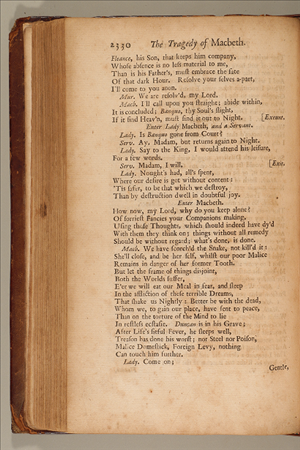 2330 The Tragedy of Macbeth.
Fleance, his Son, that keeps him company,
Whose absence is no less material to me,
Than is his Father's, must embrace the fate
Of that dark Hour. Resolve your selves a-part,
I'll come to you anon.
Mur. We are resolv'd, my Lord.
Mach. I'll call upon you straight; abide within,
It is concluded; Banquo, thy Soul's flight,
If it find Heav'n, must find it out to Night. [Exeunt.
Enter Lady Macbeth, and a Servant.
Lady. Is Banquo gone from Court?
Serv. Ay, Madam, but returns again to Night.
Lady. Say to the King, I would attend his leisure,
For a few words.
Serv. Madam, I will. [Exit.
Lady. Nought's had, all's spent,
Where our desire is got without content:
'Tis safer, to be that which we destroy,
Than by destruction dwell in doubtful joy.
Enter Macbeth.
How now, my Lord, why do you keep alone?
Of sorriest Fancies your Companions making,
Using those Thoughts, which should indeed have dy'd
With them they think on; things without all remedy
Should be without regard; what's done, is done.
Mach. We have scorch'd the Snake, not kill'd it:
She'll close, and be her self, whilst our poor Malice
Remains in danger of her former Tooth.
But let the frame of things disjoint,
Both the Worlds suffer,
E'er we will eat our Meal in fear, and sleep
In the affliction of these terrible Dreams,
That shake us Nightly: Better be with the dead,
Whom we, to gain our place, have sent to peace,
Than on the torture of the Mind to lie
In restless ecstasie. Duncan is in his Grave;
After Life's fitful Fever, he sleeps well,
Treason has done his worst; nor Steel nor Poison,
Malice Domestick, Foreign Levy, nothing
Can touch him further.
Lady. Come on;
Gentle.